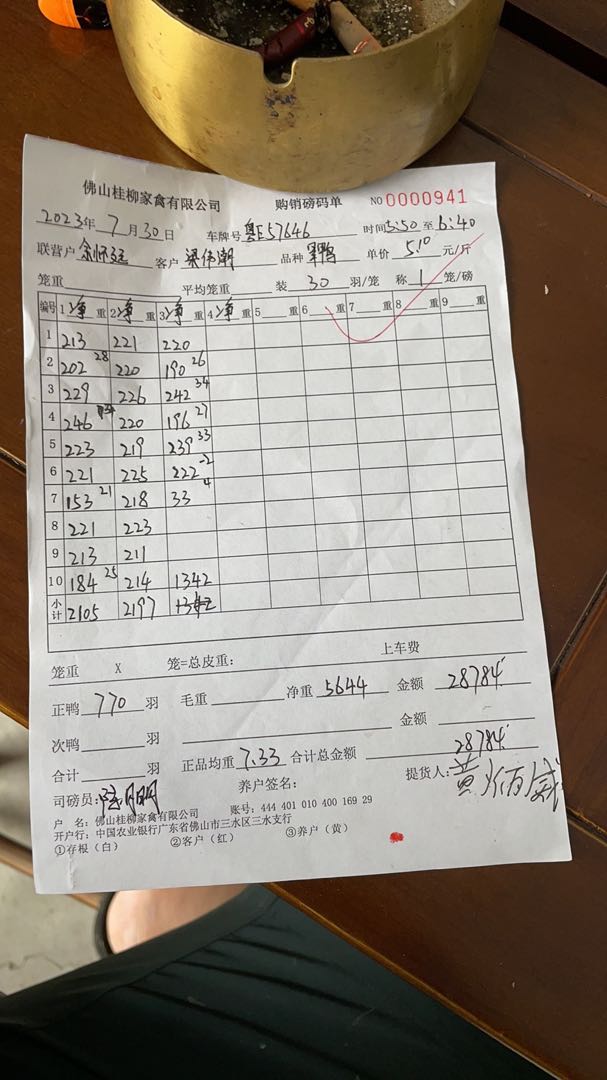 佛山桂柳家禽有限公司 购销磅码单 NO 0000941
2023年 7 月 30 日 车牌号 粤E57646 时间 5:50 至 6:40
联营户 客户 梁伟潮 品种 鸭 单价 5.10 元/斤
笼重 平均笼重 装 30 羽/笼 称 1 笼/磅
编号 1 净 重 2 净 重 3 净 重 4 净 重 5 重 6 重 7 重 8 重 9 重
1 213 221 220
2 202 28 220 190 26
3 229 226 242 34
4 246 220 196 27
5 223 219 239 33
6 221 225 222 -2
7 153 21 218 33 4
8 221 223
9 213 211
10 184 25 214 1342
小计 2105 2197
笼重 X 笼=总皮重: 上车费
正鸭 770 羽 毛重 净重 5644 金额 28784
次鸭 羽 金额
合计 羽 正品均重 7.33 合计总金额 28784
司磅员: 养户签名: 提货人: 黄
户 名: 佛山桂柳家禽有限公司 账号: 444 401 010 400 169 29
开户行: 中国农业银行广东省佛山市三水区三水支行
①存根(白) ②客户(红) ③养户(黄)